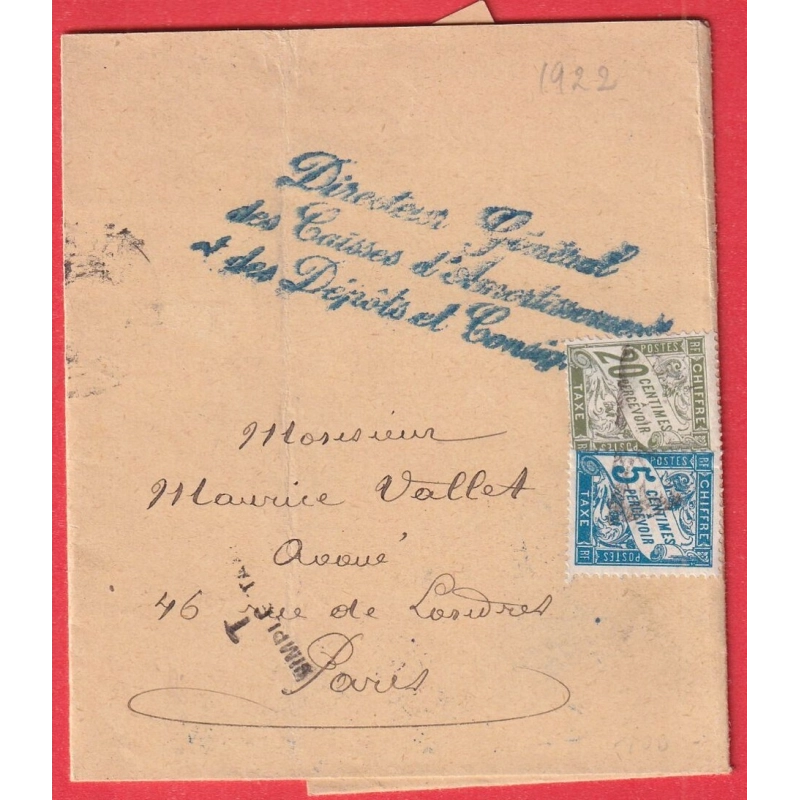 1922
Directeur Général
des Caisses d'Amortissement
et des Dépôts et Consig.
RF POSTES
CHIFFRE
TAXE
20
CENTIMES
A
PERCEVOIR
POSTES RF
RF POSTES
CHIFFRE
TAXE
5
CENTIMES
A
PERCEVOIR
POSTES RF
Monsieur
Maurice Vallet
Avoué
46 rue de Londres
Paris
T
SIMPLE TA